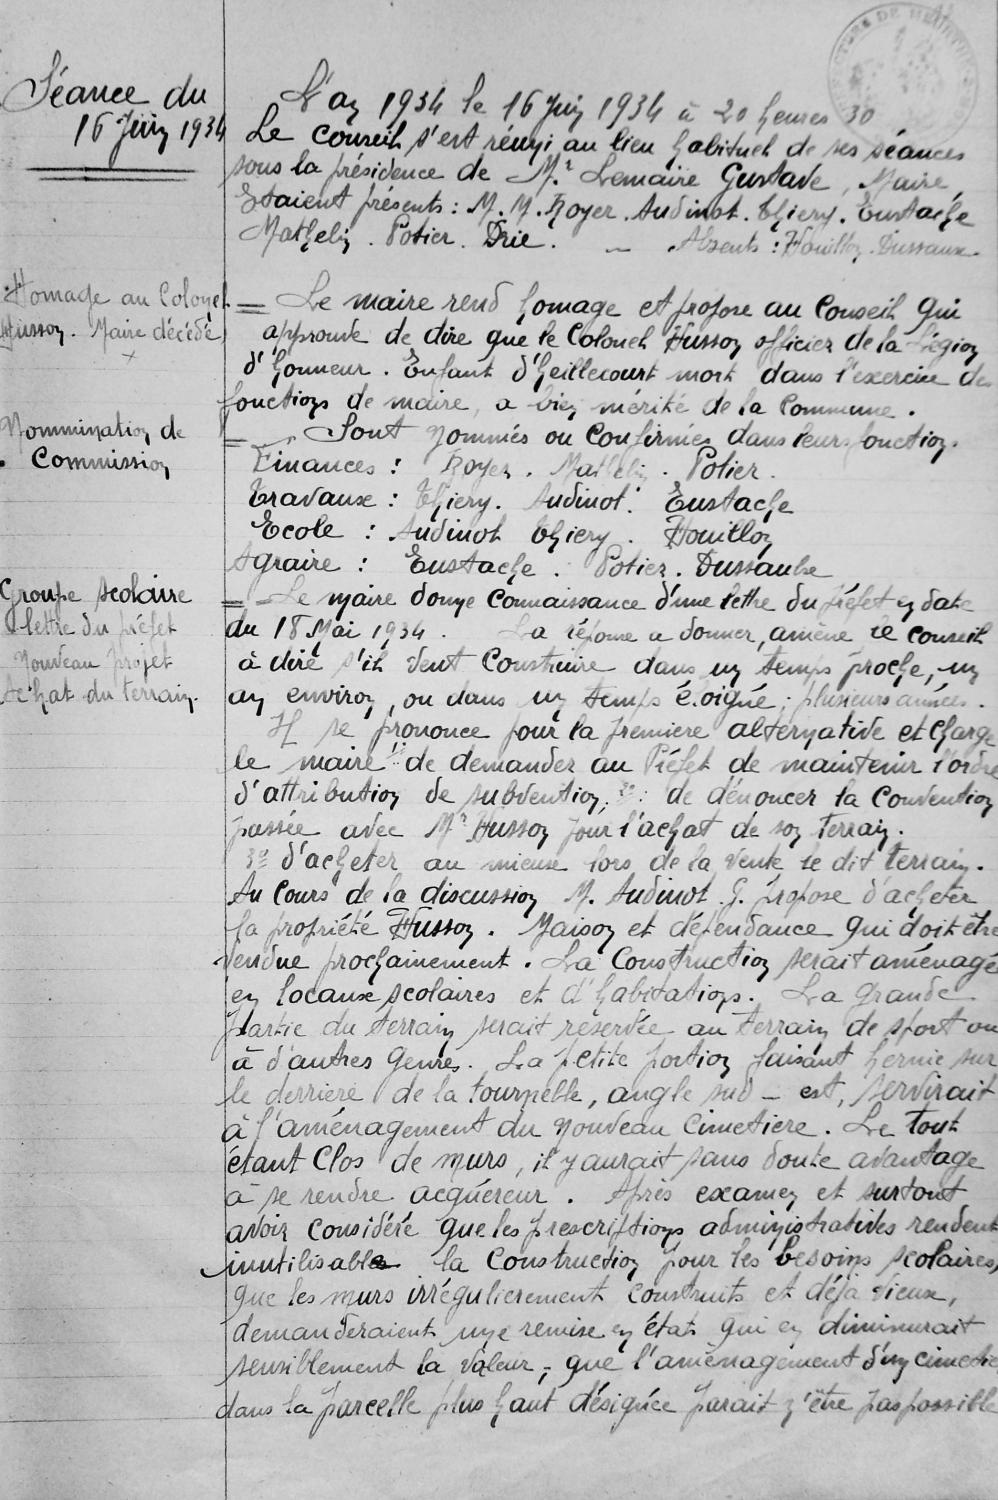 Séance du
16 Juin 1934
L'an 1934 le 16 Juin 1934 à 20 heures 30
Le Conseil s'est réuni au lieu habituel de ses séances
sous la présidence de Mr Lemaire Gustave, Maire,
Etaient présents : M.M. Royer. Audinot. Thiery. Eustache
Mathelin. Potier. Drie. — Absents : Houillon. Dussaux.
Homage au Colonel
Husson. Maire décédé
= Le maire rend homage et propose au Conseil qui
approuve de dire que le Colonel Husson officier de la Légion
d'honneur. Enfant d'Heillecourt mort dans l'exercice des
fonctions de maire, a bien mérité de la Commune.
Nommination de
Commission
= Sont nommés ou confirmés dans leurs fonction.
Finances : Royer. Mathelin. Potier.
Travaux : Thiery. Audinot. Eustache
Ecole : Audinot Thiery. Houillon
Agraire : Eustache. Potier. Dussaulx
Groupe Scolaire
lettre du préfet
nouveau projet
Achat du terrain.
= Le maire donne connaissance d'une lettre du préfet en date
du 18 Mai 1934. La réponse a donner, amène le conseil
à dire s'il veut construire dans un temps proche, un
an environ, ou dans un temps éloigné ; plusieurs années.
Il se prononce pour la premiere alternative et charge
le maire 1º de demander au Préfet de maintenir l'ordre
d'attribution de subvention, 2º : de dénoncer la Convention
passée avec Mr Husson pour l'achat de son terrain.
3º d'acheter au mieux lors de la vente le dit terrain.
Au cours de la discussion M. Audinot G. propose d'acheter
la propriété Husson. Maison et dépendance qui doit être
vendue prochainement. La Construction serait aménagé
en locaux scolaires et d'habitations. La grande
partie du terrain serait réservée au terrain de sport ou
à d'autres genres. La petite portion faisant hernie sur
le derriere de la tournelle, angle sud - est, servirait
à l'aménagement du nouveau Cimetiere. Le tout
étant Clos de murs, il y aurait sans doute avantage
à se rendre acquéreur. Après examen et surtout
avoir considéré que les prescriptions administratives rendent
inutilisable la Construction pour les besoins scolaires,
que les murs irrégulierement construits et déjà vieux,
demanderaient une remise en état qui en diminurait
sensiblement la valeur ; que l'aménagement d'un cimetie
dans la parcelle plus haut désignée parait n'être pas possible